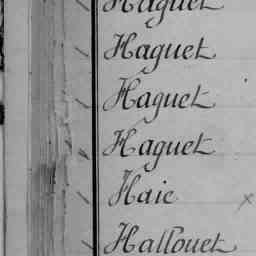 Haguet
Haguet
Haguet
Haguet
Haie
Hallouet